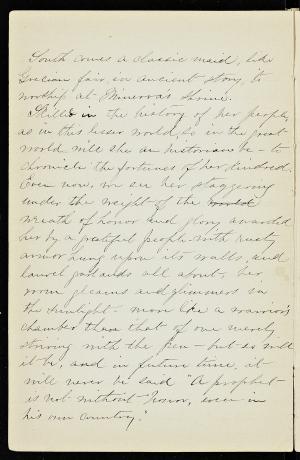 South comes a classic maid, like
Grecian fair, in ancient story, to
worship at Minerva's shrine.
Skilled in the history of her people,
as in this lesser world, so in the great
world will she an historian be - to
chronicle the fortunes of her kindred.
Even now, we see her staggering
under the weight of the
wreath of honor and glory awarded
her by a grateful people. With rusty
armor hung upon its walls, and
laurel garlands all about, her
room gleams and glimmers in
the sunlight - more like a warrior's
chamber than that of one merely
striving with the pen - but so will
it be, and in future time, it
will never be said "A prophet
is not without honor, even in
his own country."